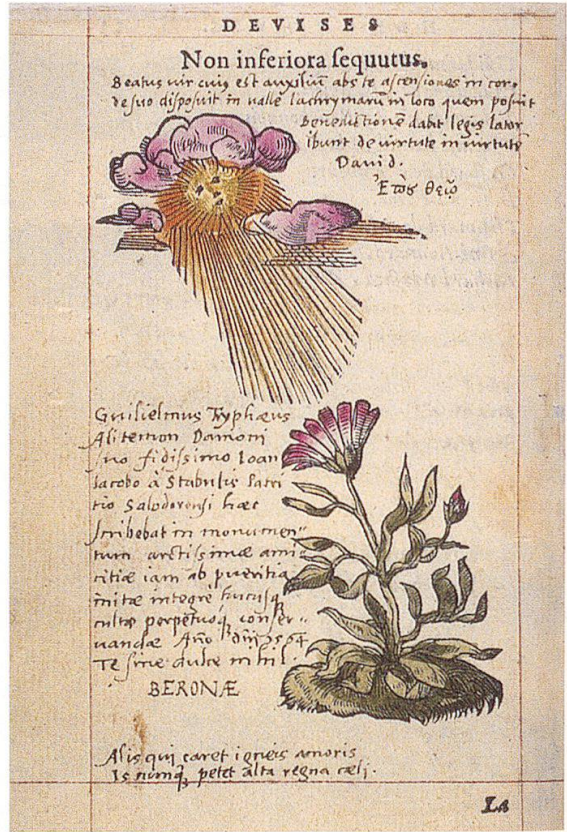 DEVISES
Non inferiora sequutus.
Beatus vir cuius est auxiliū abs te ascensiones in cor,
de suo disposuit in valle lachrymarū in loco quem posuit
Benedictionē dabit legis lator
ibunt de virtute in virtutē
David.
Guilielmus Typhæus
Damoni
suo fidissimo Ioan
Iacobo à Stabulis Patri
tio Salodorensi hæc
scribebat in monumen"
tum arctissimæ ami"
citiæ iam ab pueritia
initæ integre
cultæ perpetuoq; conser"
vandæ Año dñi 1564
Te sine dulce nihil.
BERONÆ
Alis qui caret igneis amoris
Is nunq petet alta regna cæli.
La